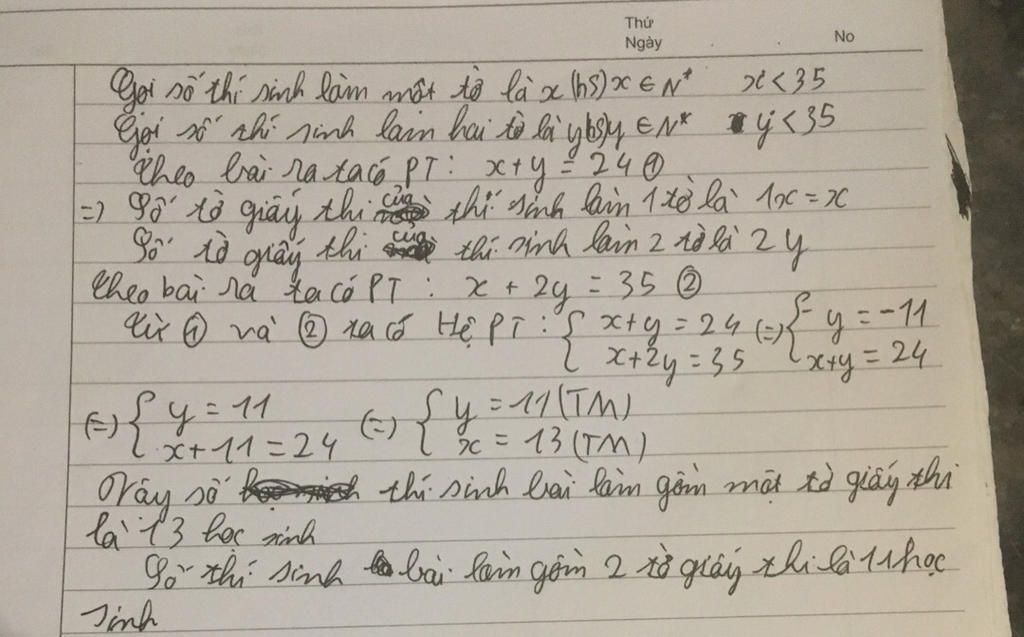 Thứ
Ngày . . No
Gọi số thí sinh làm một tờ là x (hs) x ∈ N* x < 35
Gọi số thí sinh làm hai tờ là y (hs) y ∈ N* y < 35
Theo bài ra ta có PT : x + y = 24 ①
=> Số tờ giấy thi của thí sinh làm 1 tờ là 1x = x
Số tờ giấy thi của thí sinh làm 2 tờ là 2y
Theo bài ra ta có PT : x + 2y = 35 ②
Từ ① và ② ta có Hệ PT : { x + y = 24 (=) { - y = -11
x + 2y = 35 x + y = 24
(=) { y = 11 (=) { y = 11 (TM)
x + 11 = 24 x = 13 (TM)
Vậy số thí sinh bài làm gồm một tờ giấy thi
là 13 học sinh
Số thí sinh bài làm gồm 2 tờ giấy thi là 11 học
sinh